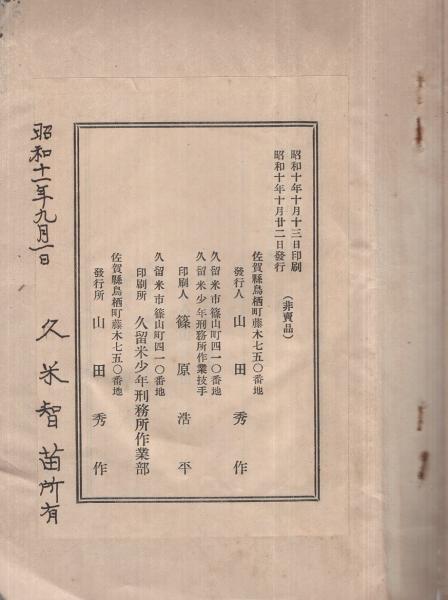 昭和十年十月十三日印刷
昭和十年十月廿二日發行
（非賣品）
佐賀縣鳥栖町藤木七五〇番地
發行人　山田秀作
久留米市篠山町四一〇番地
久留米少年刑務所作業技手
印刷人　篠原浩平
久留米市篠山町四一〇番地
印刷所　久留米少年刑務所作業部
佐賀縣鳥栖町藤木七五〇番地
發行所　山田秀作
昭和十一年九月一日
久米智苗所有